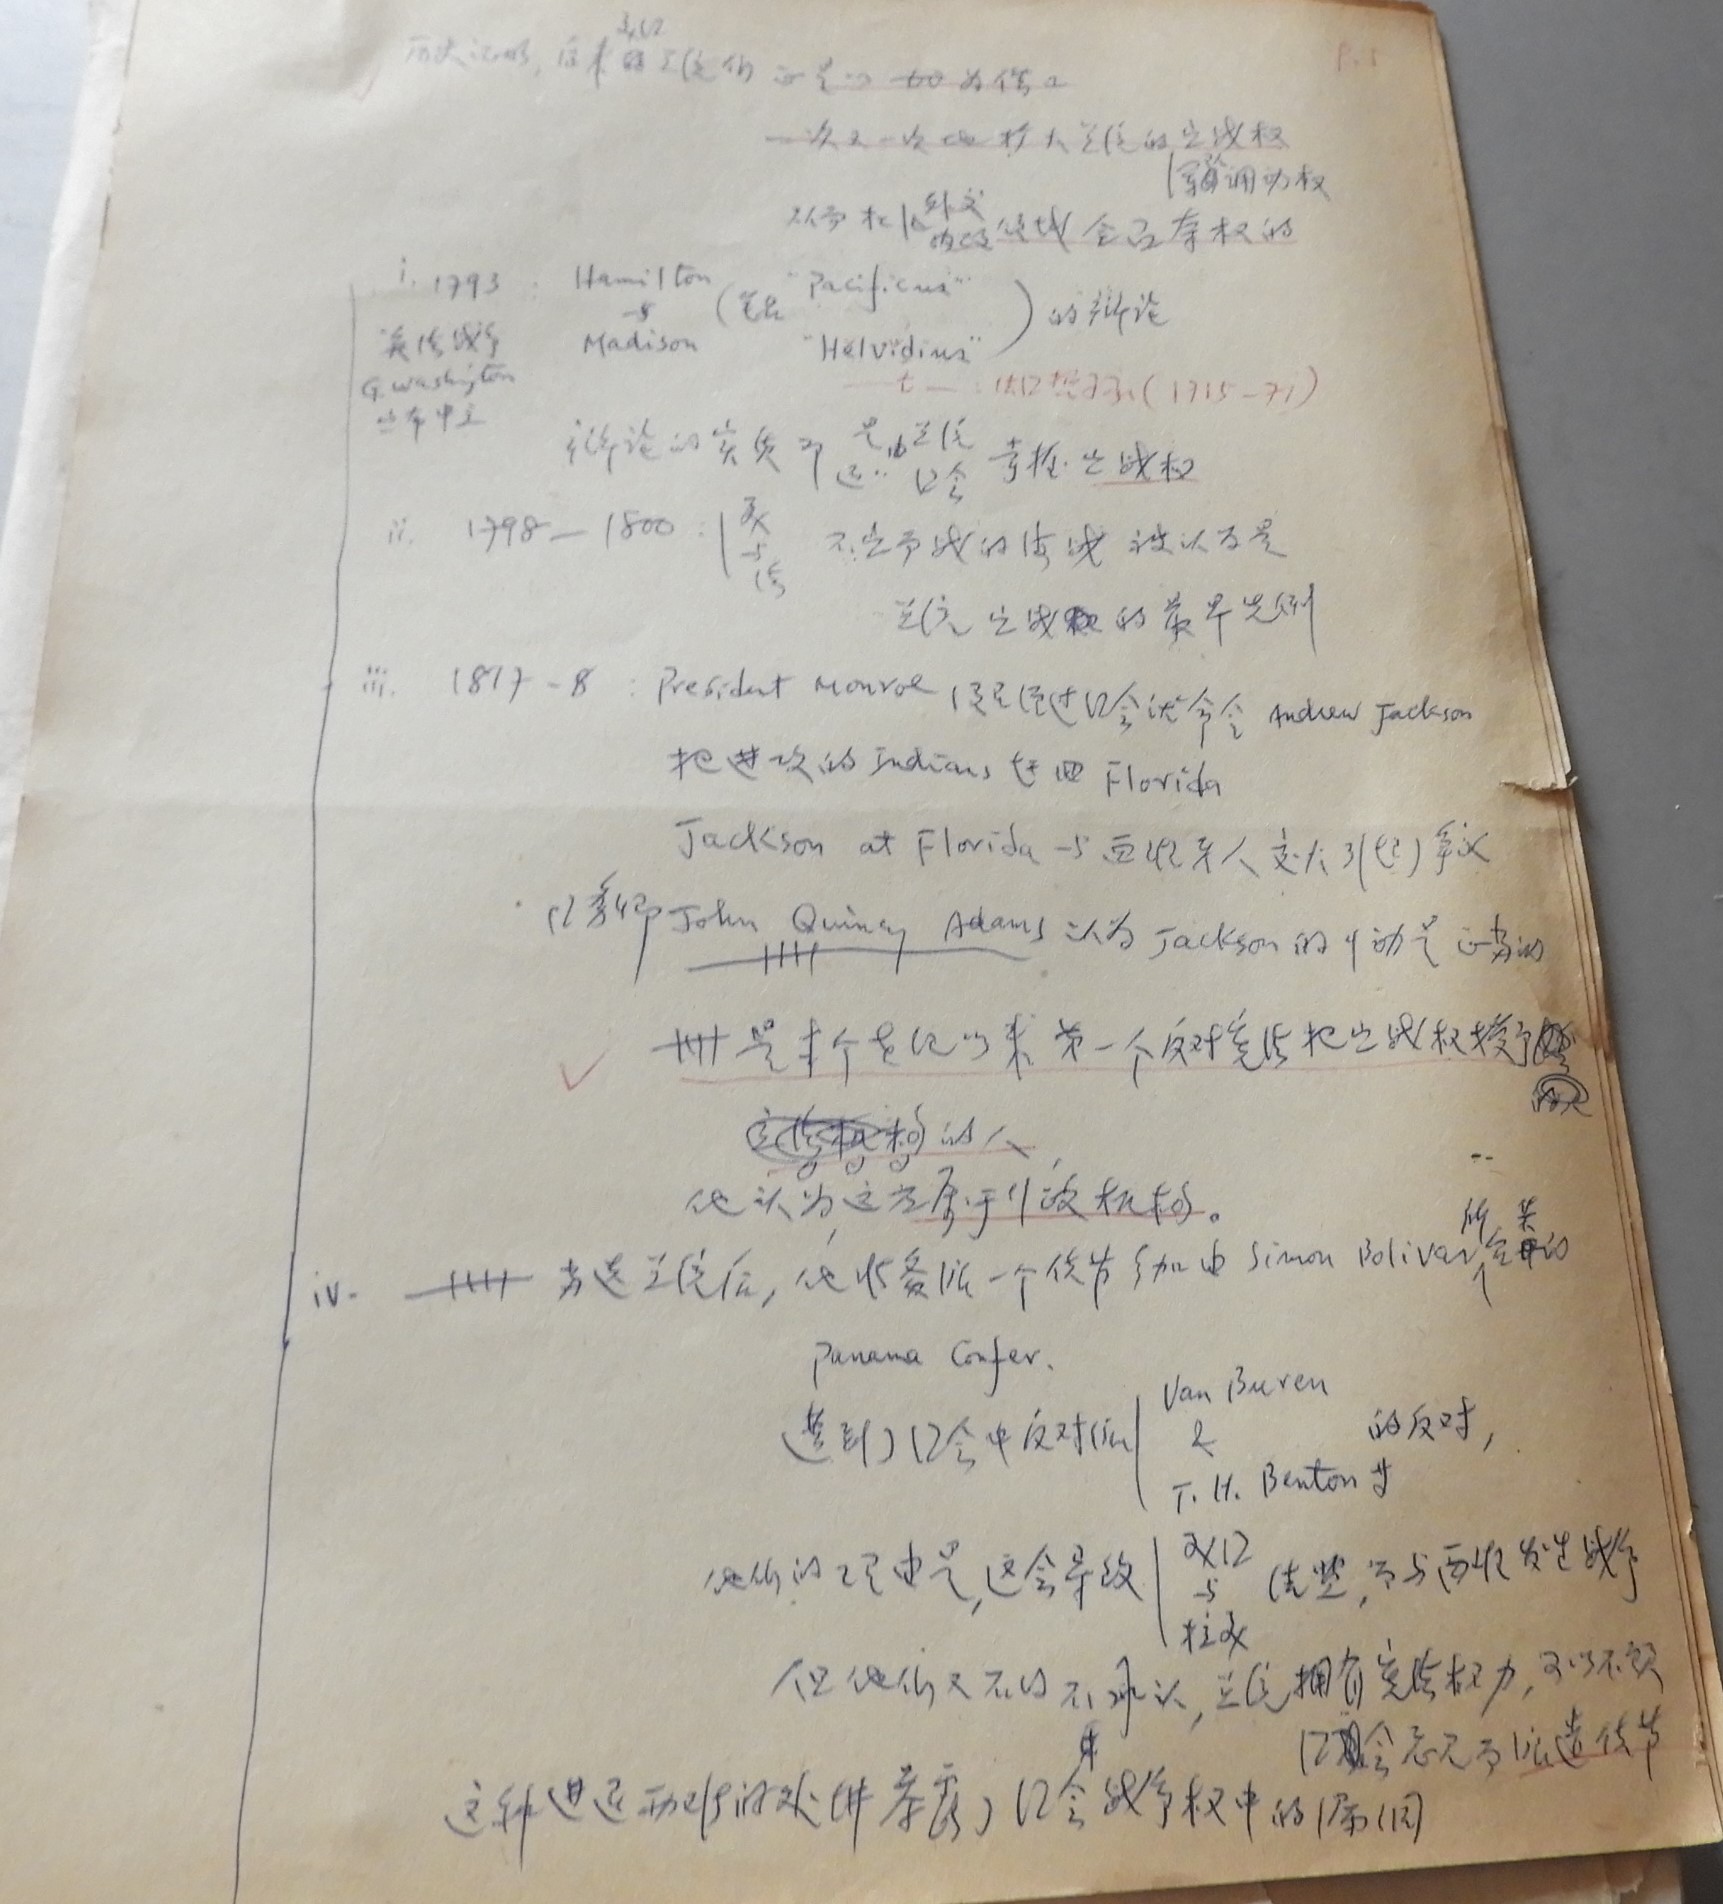 历史证明，后来美口的总统们正是以此为借口
P.5
一次又一次地扩大总统的宣战权
军队调动权
外交
内政 领域 会口 享权的
i. 1793 : Hamilton 与 Madison (笔名 "Pacificus" "Helvidius") 的辩论
英法战争
G. Washington
宣布中立
(1715-71)
辩论的实质即是由总统还是由口会掌握宣战权
ii. 1798—1800 : 美与法 不宣而战的海战 被认为是
总统宣战权的最早先例
iii. 1817-8 : President Monroe 没经过口会就命令 Andrew Jackson
把进攻的 Indians 赶回 Florida
Jackson at Florida 与西班牙人交火引(起)争议
口务卿 John Quincy Adams 认为 Jackson 的行动是正当的
卌 是本个世纪以来第一个反对宪法把宣战权授予
立法机构的人
他认为这应属于行政机构。
iv. 卌 当选总统后，他准备派一个使节参加由 Simon Bolivar 所召集的
Panama Confer.
遭到了口会中反对派 Van Buren & T. H. Benton 等 的反对，
他们的理由是，这会导致 美口与拉美 结盟，而与西班发生战争
但他们又不得不承认，总统拥有宪法权力，可以不顾
口会意见而派遣使节
这种进退两难的处境暴露了口会在战争权中的原因